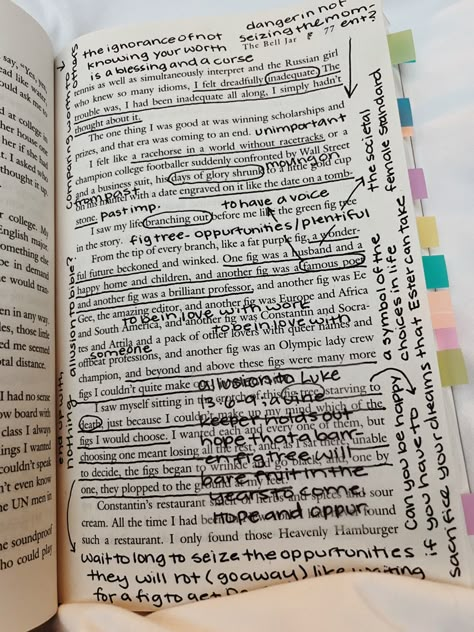 danger in not
seizing the mom-
ent?
the ignorance of not
knowing your worth
is a blessing and a curse
The Bell Jar 77
comparing worth to
others
tennis as well as simultaneously interpret and the Russian girl
who knew so many idioms, I felt dreadfully inadequate. The
trouble was, I had been inadequate all along, I simply hadn't
thought about it.
The one thing I was good at was winning scholarships and
prizes, and that era was coming to an end. unimportant
I felt like a racehorse in a world without racetracks or a
champion college footballer suddenly confronted by Wall Street
and a business suit, his days of glory shrunk to a little gold cup
moving on
from past
on his mantel with a date engraved on it like the date on a tomb-
stone. past imp. to have a voice
I saw my life branching out before me like the green fig tree
in the story. fig tree - oppurtunities/plentiful
From the tip of every branch, like a fat purple fig, a wonder-
ful future beckoned and winked. One fig was a husband and a
happy home and children, and another fig was a famous poet
and another fig was a brilliant professor, and another fig was Ee
Gee, the amazing editor, and another fig was Europe and Africa
to be in love with work
and South America, and another fig was Constantin and Socra-
to be in love with
tes and Attila and a pack of other lovers with queer names and
someone
offbeat professions, and another fig was an Olympic lady crew
champion, and beyond and above these figs were many more
figs I couldn't quite make out.
I saw myself sitting in the crotch of this fig tree, starving to
death, just because I couldn't make up my mind which of the
figs I would choose. I wanted each and every one of them, but
choosing one meant losing all the rest, and, as I sat there, unable
to decide, the figs began to wrinkle and go black, and, one by
one, they plopped to the ground at my feet.
allusion to Luke
13:6-9 as the
keeper holds out
hope that a bare
en fig tree will
bare fruit in the
years to come.
Hope and oppur
Constantin's restaurant smelt of herbs and spices and sour
cream. All the time I had been in New York I had never found
such a restaurant. I only found those Heavenly Hamburger
wait to long to seize the oppurtunities
they will not (go away) like waiting
for a fig to get
allusion to bible?
end up with
nothing
the societal
female standard
a symbol of the
choices in life
that Ester can take
Can you be happy
if you have to
sacrifice your dreams
say, "Yes,